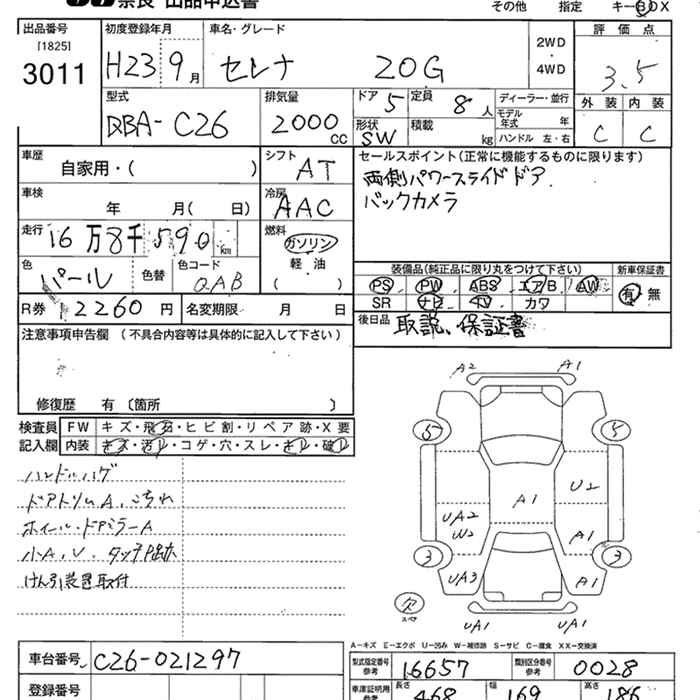 奈良 出品申込書
その他 指定 キーBOX
出品番号 [1825] 3011
初度登録年月 H23 9月
車名・グレード セレナ 20G
2WD・4WD
評価点 3.5
型式 DBA-C26
排気量 2000cc
ドア 5
定員 8人
形状 SW
積載 kg
ディーラー・並行
モデル年式 年
ハンドル 左・右
外装 C
内装 C
車歴 自家用・( )
シフト AT
セールスポイント(正常に機能するものに限ります)
両側パワースライドドア
バックカメラ
車検 年 月( 日)
冷房 AAC
走行 16万8千590km
燃料 ガソリン 軽・油 ( )
色 パール
色替
色コード QAB
装備品(純正品に限り丸をつけて下さい)
PS PW ABS エアB AW
SR ナビ TV カワ
新車保証書 有・無
R券 12260円
名変期限 月 日
後日品 取説、保証書
注意事項申告欄 (不具合内容等は具体的に記入して下さい)
修復歴 有〔箇所 〕
検査員記入欄
FW キズ・飛石・ヒビ割・リペア跡・X要
内装 キズ・汚れ・コゲ・穴・スレ・キレ・破レ
ハンドルハゲ
ドアトリムA、こすれ
ホイール・ドアミラーA
小A、U、タッチP跡
けん引装置取付
A2 A1
5 5
U2
A1
UA2
W2
A1
3 3
UA3 A1
欠
スペア
UA1 UA1
A-キズ E-エクボ U-凹み W-補修跡 S-サビ C-腐食 XX-交換済
車台番号 C26-021297
型式指定番号 参考 16657
類別区分番号 参考 0028
登録番号
車庫証明用 参考 長さ 468 幅 169 高さ 186